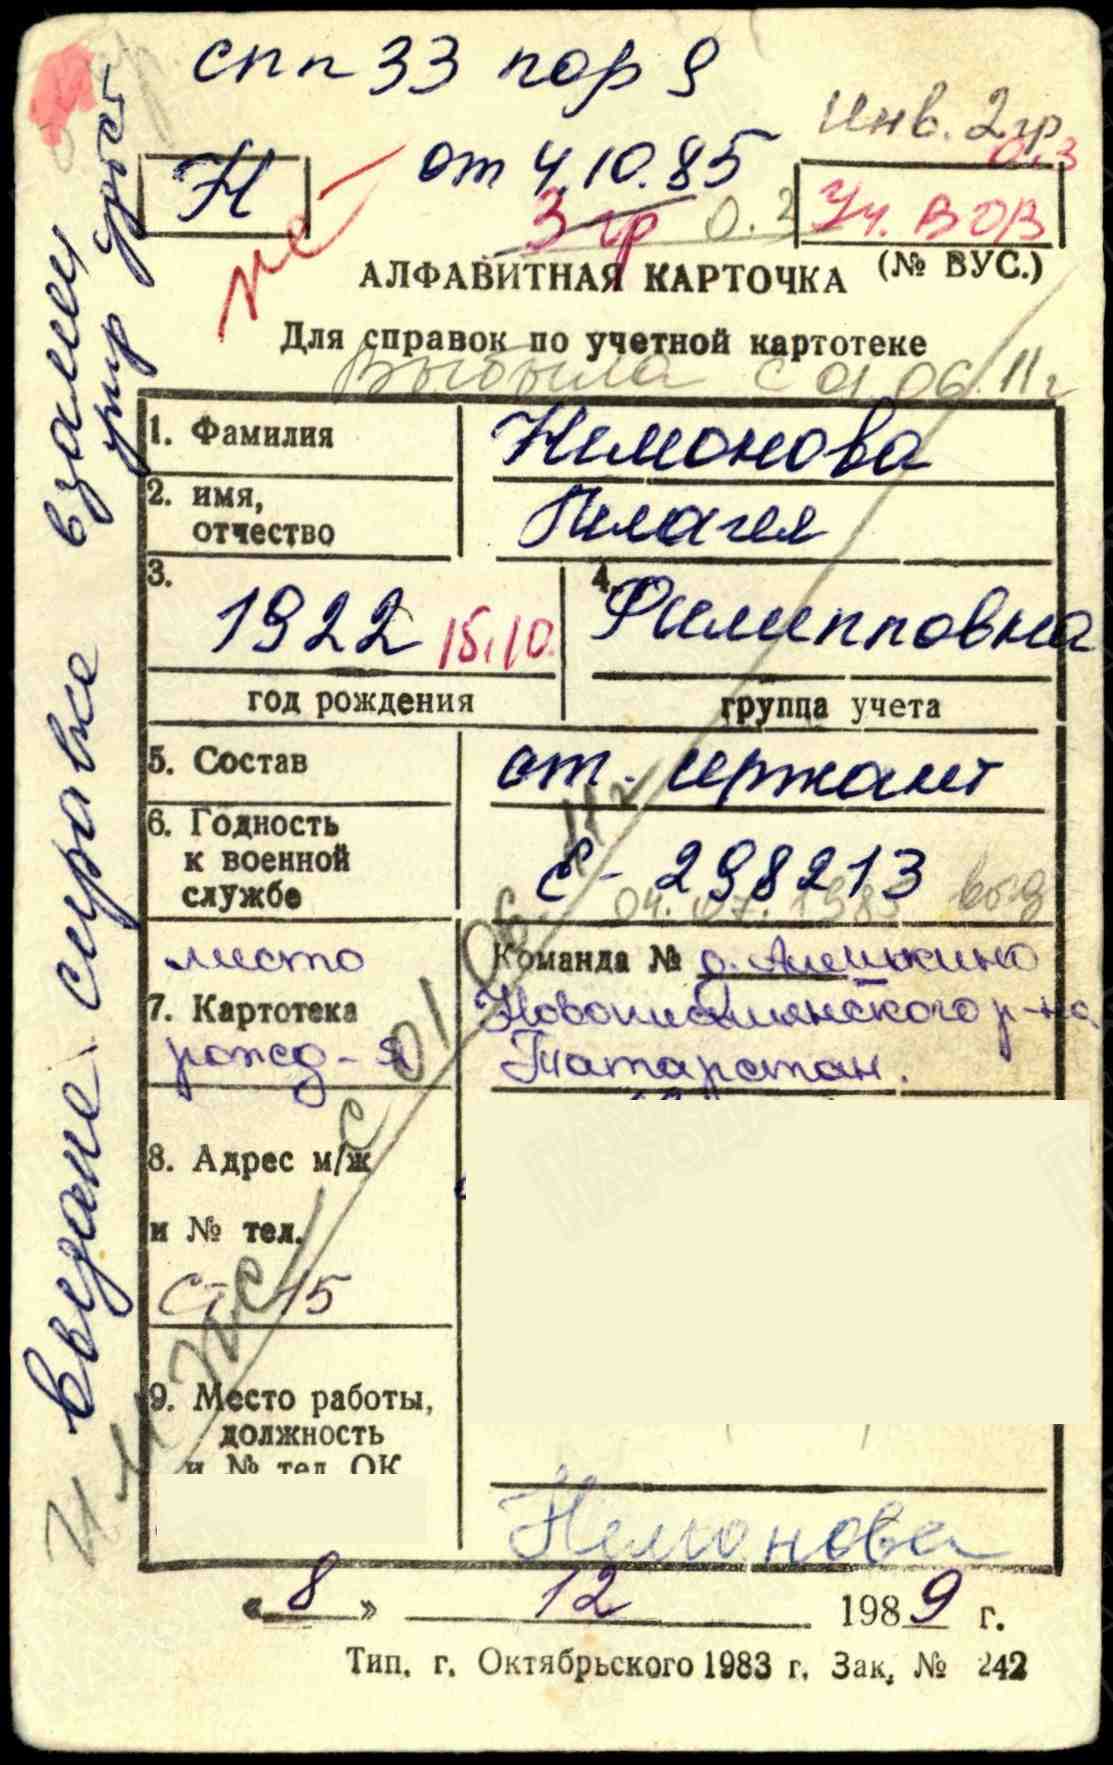 спп 33 пор 9
Инв. 2 гр
о.з
Н
от 4.10.85
Уч. ВОВ
3 гр о.з
не
(№ ВУС.)
АЛФАВИТНАЯ КАРТОЧКА
Для справок по учетной картотеке
Выбыла с 01 06. 11 г
1. Фамилия
Нимонова
2. имя,
отчество
Пилагея
3.
1922 15.10.
год рождения
4.
Филипповна
группа учета
5. Состав
ст. сержант
6. Годность
к военной
службе
Е - 298213
04. 07. 1985 выд
место
7. Картотека
рожд-я
Команда № д. Алешкино
Новописмянского р-на
Татарстан.
8. Адрес м/ж
и № тел.
9. Место работы,
должность
и № тел ОК
Немонова
« 8 » 12 1989 г.
Тип. г. Октябрьского 1983 г. Зак. № 242
взамен